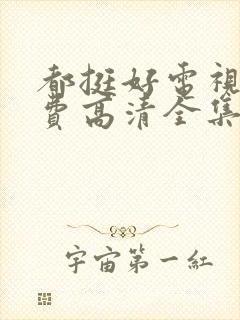 都挺好電視
費高清全集
宇宙第一紅